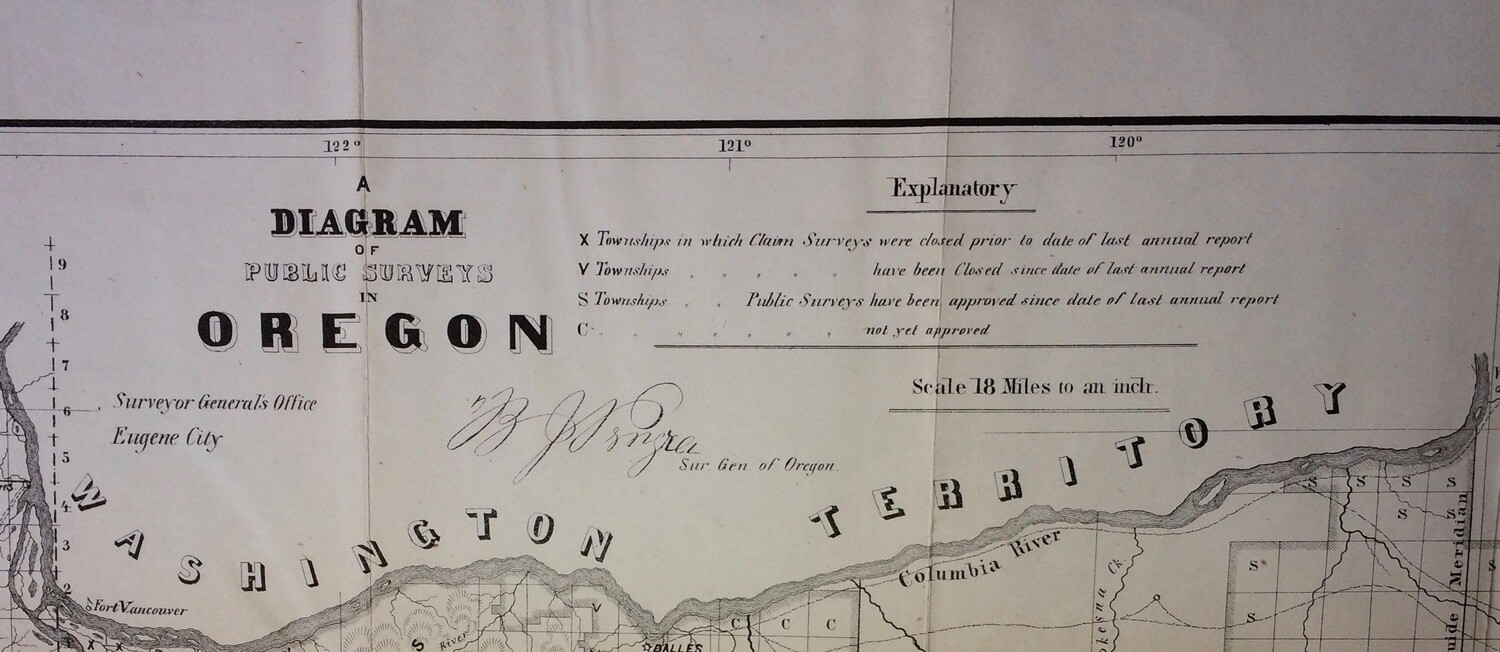 122°
121°
120°
A
DIAGRAM
OF
PUBLIC SURVEYS
IN
OREGON
Surveyor General's Office
Eugene City
Sur Gen of Oregon.
Explanatory
X Townships in which Claim Surveys were closed prior to date of last annual report
V Townships " " " " " have been Closed since date of last annual report
S Townships " " Public Surveys have been approved since date of last annual report
C " " " " " not yet approved
Scale 18 Miles to an inch.
9
8
7
6
5
4
3
2
WASHINGTON TERRITORY
Fort Vancouver
Columbia River
S S S S
S S
S S
S
V
C C C
X X
S
River
DALLES
Ck
Meridian